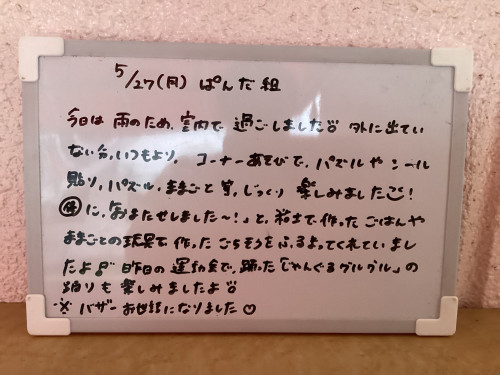 5/27(月) ぱんだ組
今日は 雨のため、室内で 過ごしました。 外に出てい
ない分、いつもより、コーナーあそびで、パズルや シール
貼り、パズル、ままごと 等、じっくり 楽しみました!
に、「おまたせしました〜!」と、粘土で作った ごはんや
ままごとの玩具で 作った ごちそうを ふるまってくれていまし
たよ♪ 昨日の 運動会で、踊った「じゃんぐるグルグル」の
踊りも 楽しみましたよ
※ バザー お世話になりました♡